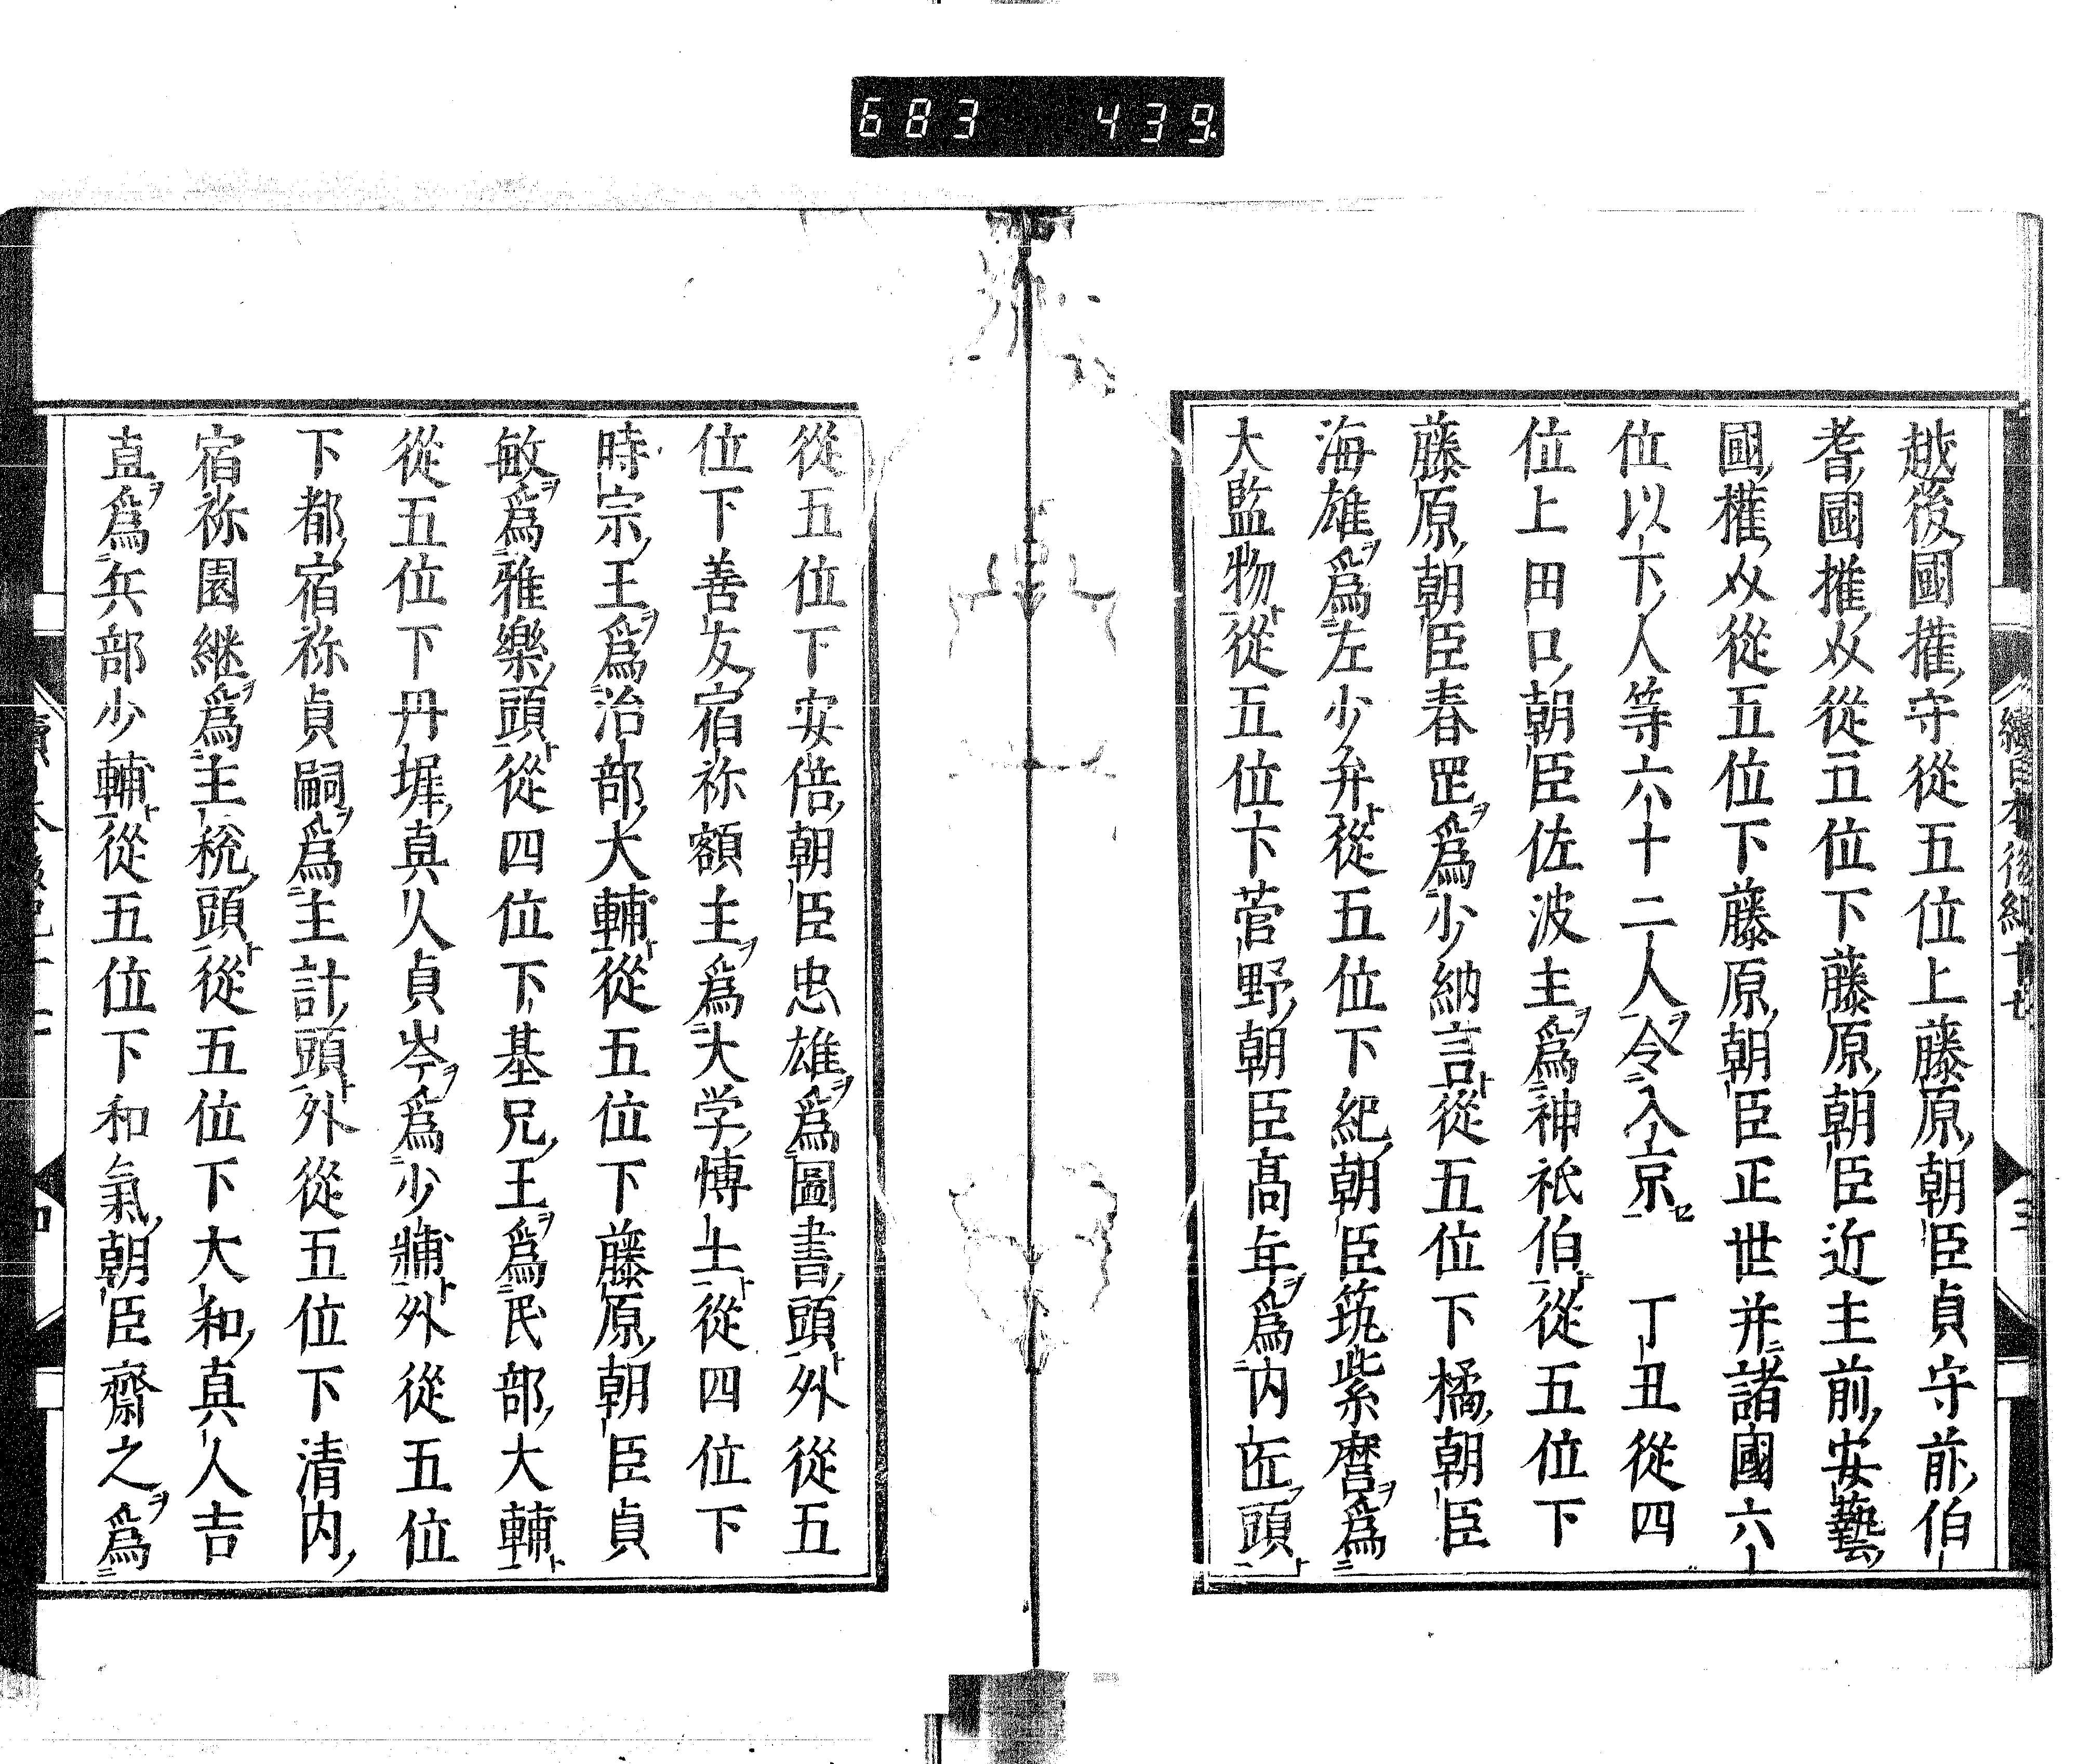 683 439
越後國㩁守從五位上藤原朝臣貞守前伯
耆國㩁㸚從五位下藤原朝臣近主前安藝
國㩁㸚從五位下藤原朝臣正世并諸國六
位以下人等六十二人令入京 丁丑從四
位上田口朝臣佐波主爲神祇伯從五位下
藤原朝臣春罡爲少納言從五位下橘朝臣
海雄爲左少弁從五位下紀朝臣筑紫麿爲
大監物從五位下菅野朝臣高年爲内匠頭
從五位下安倍朝臣忠雄爲圖書頭外從五
位下善友宿祢額主爲大学愽士從四位下
時宗王爲治部大輔從五位下藤原朝臣貞
敏爲雅樂頭從四位下基兄王爲民部大輔
從五位下丹墀真人貞岑爲少輔外從五位
下都宿祢貞嗣爲主計頭外從五位下清内
宿祢園継爲主税頭從五位下大和真人吉
直爲兵部少輔從五位下和氣朝臣齋之爲
續日本後紀十七
三